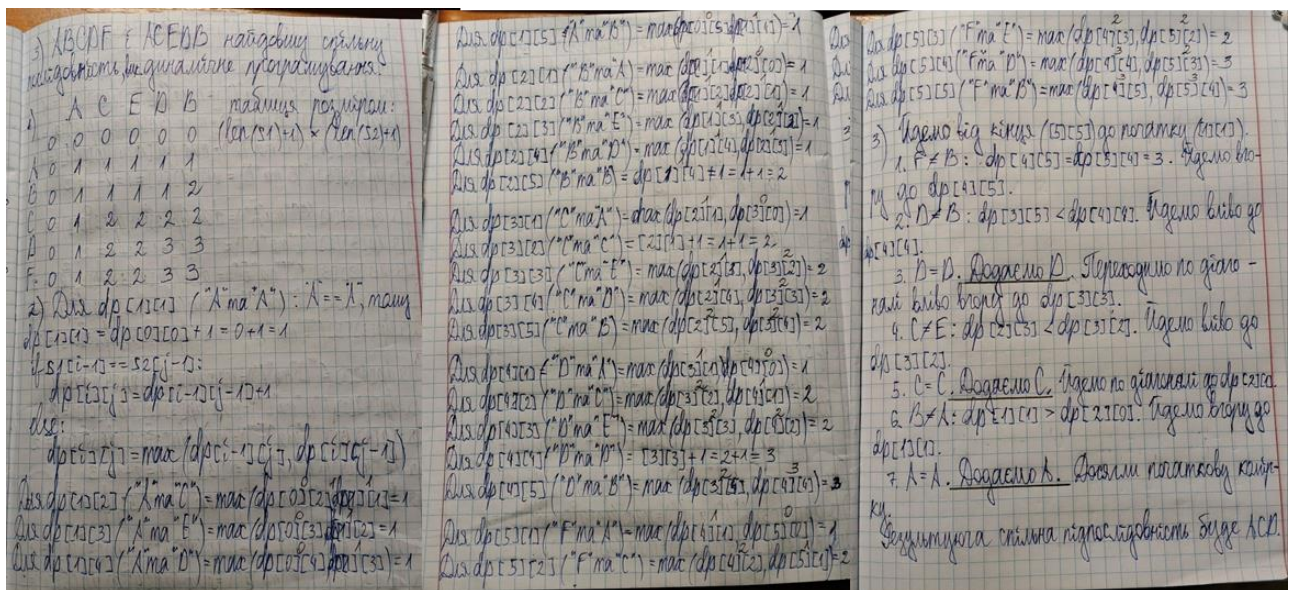 3) ABCDF і ACEDB найдовшу спільну
послідовність, динамічне програмування.
1) A C E D B таблиця розміром:
0 0 0 0 0 0 (len(S1)+1) × (len(S2)+1)
A 0 1 1 1 1 1
B 0 1 1 1 1 2
C 0 1 2 2 2 2
D 0 1 2 2 3 3
F 0 1 2 2 3 3
2) Для dp[1][1] ("A" та "A"): "A"=="A", тому
dp[1][1] = dp[0][0]+1 = 0+1 = 1
if s1[i-1]==s2[j-1]:
dp[i][j]=dp[i-1][j-1]+1
else:
dp[i][j]=max(dp[i-1][j], dp[i][j-1])
Для dp[1][2] ("A" та "C")=max(dp[0][2], dp[1][1])=1
Для dp[1][3] ("A" та "E")=max(dp[0][3], dp[1][2])=1
Для dp[1][4] ("A" та "D")=max(dp[0][4], dp[1][3])=1
Для dp[1][5] ("A" та "B")=max(dp[0][5], dp[1][4])=1
Для dp[2][1] ("B" та "A")=max(dp[1][1], dp[2][0])=1
Для dp[2][2] ("B" та "C")=max(dp[1][2], dp[2][1])=1
Для dp[2][3] ("B" та "E")=max(dp[1][3], dp[2][2])=1
Для dp[2][4] ("B" та "D")=max(dp[1][4], dp[2][3])=1
Для dp[2][5] ("B" та "B")= dp[1][4]+1=1+1=2
Для dp[3][1] ("C" та "A")=max(dp[2][1], dp[3][0])=1
Для dp[3][2] ("C" та "C")=[2][1]+1=1+1=2
Для dp[3][3] ("C" та "E")=max(dp[2][3], dp[3][2])=2
Для dp[3][4] ("C" та "D")=max(dp[2][4], dp[3][3])=2
Для dp[3][5] ("C" та "B")=max(dp[2][5], dp[3][4])=2
Для dp[4][1] ("D" та "A")=max(dp[3][1], dp[4][0])=1
Для dp[4][2] ("D" та "C")=max(dp[3][2], dp[4][1])=2
Для dp[4][3] ("D" та "E")=max(dp[3][3], dp[4][2])=2
Для dp[4][4] ("D" та "D")= [3][3]+1=2+1=3
Для dp[4][5] ("D" та "B")=max(dp[3][5], dp[4][4])=3
Для dp[5][1] ("F" та "A")=max(dp[4][1], dp[5][0])=1
Для dp[5][2] ("F" та "C")=max(dp[4][2], dp[5][1])=2
Для dp[5][3] ("F" та "E")=max(dp[4][3], dp[5][2])=2
Для dp[5][4] ("F" та "D")=max(dp[4][4], dp[5][3])=3
Для dp[5][5] ("F" та "B")=max(dp[4][5], dp[5][4])=3
3) Йдемо від кінця ([5][5]) до початку ([1][1]).
1. F≠B: dp[4][5]=dp[5][4]=3. Йдемо вго-
ру до dp[4][5].
2. D≠B: dp[3][5]<dp[4][4]. Йдемо вліво до
dp[4][4].
3. D=D. Додаємо D. Переходимо по діаго-
налі вліво вгору до dp[3][3].
4. C≠E: dp[2][3]<dp[3][2]. Йдемо вліво до
dp[3][2].
5. C=C. Додаємо C. Йдемо по діагоналі до dp[2][1].
6. B≠A: dp[1][1]>dp[2][0]. Йдемо вгору до
dp[1][1].
7. A=A. Додаємо A. Досягли початкову комір-
ку.
Результуюча спільна підпослідовність буде ACD.